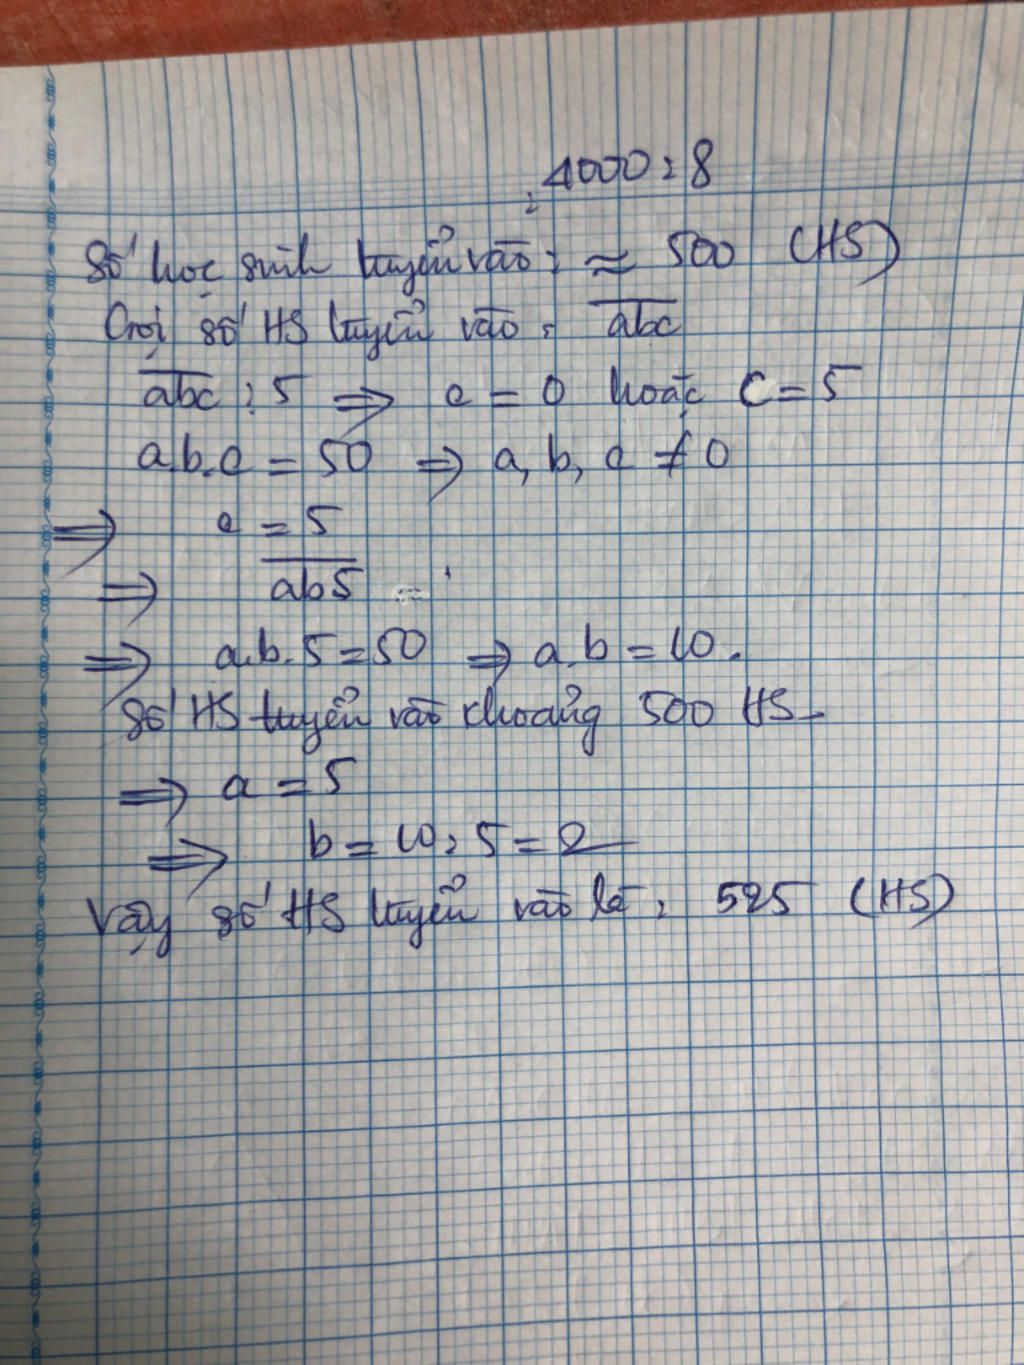 : 4000 : 8
Số học sinh tuyển vào : ≈ 500 (HS)
Gọi số HS tuyển vào : abc
abc : 5 => c = 0 hoặc c = 5
a.b.c = 50 => a, b, c ≠ 0
=> c = 5
=> ab5
=> a.b.5 = 50 => a.b = 10.
Số HS tuyển vào khoảng 500 HS
=> a = 5
=> b = 10 : 5 = 2
Vậy số HS tuyển vào là : 525 (HS)